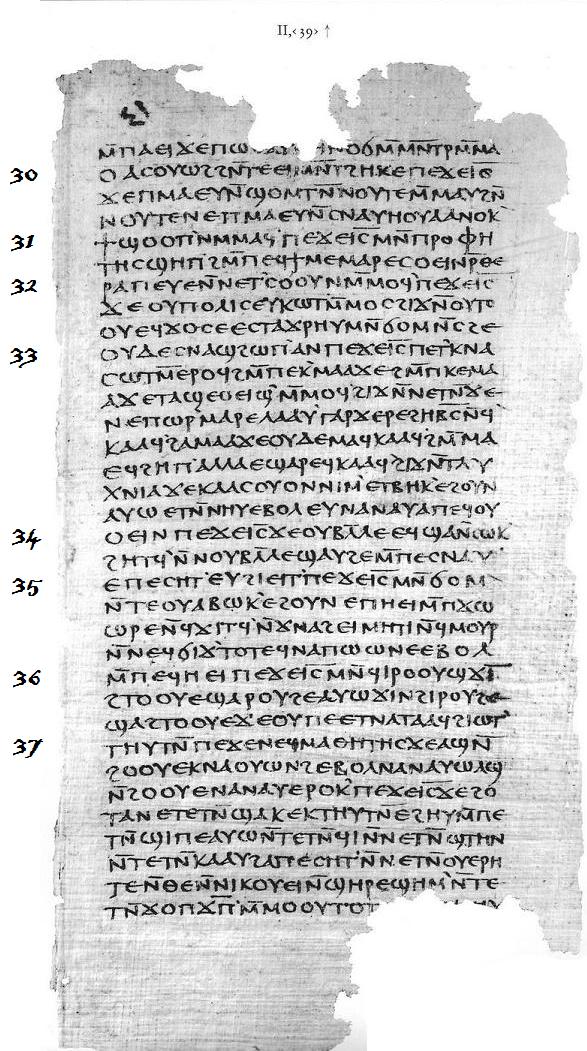 II,‹39› ↑
ⲙ̄ⲡⲁⲉⲓϫⲉⲡⲱ ⲛⲟϭⲙ̄ⲙⲛ̄ⲧⲣⲙ̄ⲙⲁ
30 ⲟⲁⲥⲟⲩⲱϩϩⲛ̄ⲧⲉⲉⲓⲙⲛ̄ⲧϩⲏⲕⲉⲡⲉϫⲉⲓ̄ⲥ̄
ϫⲉⲡⲙⲁⲉⲩⲛ̄ϣⲟⲙⲧⲛ̄ⲛⲟⲩⲧⲉⲙ̄ⲙⲁⲩϩⲛ̄
ⲛⲟⲩⲧⲉⲛⲉⲡⲙⲁⲉⲩⲛ̄ⲥⲛⲁⲩⲏⲟⲩⲁⲁⲛⲟⲕ
31 ϯϣⲟⲟⲡⲛⲙⲙⲁϥⲡⲉϫⲉⲓ̄ⲥ̄ⲙⲛ̄ⲡⲣⲟⲫⲏ
ⲧⲏⲥϣⲏⲡϩⲙ̄ⲡⲉϥϯⲙⲉⲙⲁⲣⲉⲥⲟⲉⲓⲛⲣ̄ⲑⲉ
32 ⲣⲁⲡⲉⲩⲉⲛ̄ⲛⲉⲧⲥⲟⲟⲩⲛⲙ̄ⲙⲟϥⲡⲉϫⲉⲓ̄ⲥ̄
ϫⲉⲟⲩⲡⲟⲗⲓⲥⲉⲩⲕⲱⲧⲙ̄ⲙⲟⲥϩⲓϫⲛ̄ⲟⲩⲧⲟ
ⲟⲩⲉϥϫⲟⲥⲉⲉⲥⲧⲁϫⲣⲏⲩⲙⲛ̄ϭⲟⲙⲛ̄ⲥϩⲉ
33 ⲟⲩⲇⲉⲥⲛⲁϣϩⲱⲡⲁⲛⲡⲉϫⲉⲓ̄ⲥ̄ⲡⲉⲧⲕⲛⲁ
ⲥⲱⲧⲙ̄ⲉⲣⲟϥϩⲙ̄ⲡⲉⲕⲙⲁⲁϫⲉϩⲙ̄ⲡⲕⲉⲙⲁ
ⲁϫⲉⲧⲁϣⲉⲟⲉⲓϣⲙ̄ⲙⲟϥϩⲓϫⲛ̄ⲛⲉⲧⲛ̄ϫⲉ
ⲛⲉⲡⲱⲣⲙⲁⲣⲉⲗⲁⲁⲩⲅⲁⲣϫⲉⲣⲉϩⲏⲃⲥ̄ⲛ̄ϥ
ⲕⲁⲁϥϩⲁⲙⲁⲁϫⲉⲟⲩⲇⲉⲙⲁϥⲕⲁⲁϥϩⲙ̄ⲙⲁ
ⲉϥϩⲏⲡⲁⲗⲗⲁⲉϣⲁⲣⲉϥⲕⲁⲁϥϩⲓϫⲛ̄ⲧⲗⲩ
ⲭⲛⲓⲁϫⲉⲕⲁⲁⲥⲟⲩⲟⲛⲛⲓⲙⲉⲧⲃⲏⲕⲉϩⲟⲩⲛ
ⲁⲩⲱⲉⲧⲛ̄ⲛⲏⲩⲉⲃⲟⲗⲉⲩⲛⲁⲛⲁⲩⲁⲡⲉϥⲟⲩ
34 ⲟⲉⲓⲛⲡⲉϫⲉⲓ̄ⲥ̄ϫⲉⲟⲩⲃⲗ̄ⲗⲉⲉϥϣⲁⲛⲥⲱⲕ
ϩⲏⲧϥ̄ⲛ̄ⲛⲟⲩⲃⲗ̄ⲗⲉϣⲁⲩϩⲉⲙ̄ⲡⲉⲥⲛⲁⲩ
35 ⲉⲡⲉⲥⲏⲧⲉⲩϩⲓⲉⲓⲧⲡⲉϫⲉⲓ̄ⲥ̄ⲙⲛ̄ϭⲟⲙ
ⲛ̄ⲧⲉⲟⲩⲁⲃⲱⲕⲉϩⲟⲩⲛⲉⲡⲏⲉⲓⲙ̄ⲡϫⲱ
ⲱⲣⲉⲛ̄ϥϫⲓⲧϥ̄ⲛ̄ϫⲛⲁϩⲉⲓⲙⲏⲧⲓⲛ̄ϥⲙⲟⲩⲣ
ⲛ̄ⲛⲉϥϭⲓϫⲧⲟⲧⲉϥⲛⲁⲡⲱⲱⲛⲉⲉⲃⲟⲗ
36 ⲙ̄ⲡⲉϥⲏⲉⲓⲡⲉϫⲉⲓ̄ⲥ̄ⲙⲛ̄ϥⲓⲣⲟⲟⲩϣϫⲓ
ϩⲧⲟⲟⲩⲉϣⲁⲣⲟⲩϩⲉⲁⲩⲱϫⲓⲛϩⲓⲣⲟⲩϩⲉ
ϣⲁϩⲧⲟⲟⲩⲉϫⲉⲟⲩⲡⲉⲉⲧⲛⲁⲧⲁⲁϥϩⲓⲱⲧ
37 ⲧⲏⲩⲧⲛ̄ⲡⲉϫⲉⲛⲉϥⲙⲁⲑⲏⲧⲏⲥϫⲉⲁϣⲛ̄
ϩⲟⲟⲩⲉⲕⲛⲁⲟⲩⲱⲛϩⲉⲃⲟⲗⲛⲁⲛⲁⲩⲱⲁϣ
ⲛ̄ϩⲟⲟⲩⲉⲛⲁⲛⲁⲩⲉⲣⲟⲕⲡⲉϫⲉⲓ̄ⲥ̄ϫⲉϩⲟ
ⲧⲁⲛⲉⲧⲉⲧⲛ̄ϣⲁⲕⲉⲕⲧⲏⲩⲧⲛ̄ⲉϩⲏⲩⲙ̄ⲡⲉ
ⲧⲛ̄ϣⲓⲡⲉⲁⲩⲱⲛ̄ⲧⲉⲧⲛ̄ϥⲓⲛ̄ⲛⲉⲧⲛ̄ϣⲧⲏⲛ
ⲛ̄ⲧⲉⲧⲛ̄ⲕⲁⲁⲩϩⲁⲡⲉⲥⲏⲧⲛ̄ⲛⲉⲧⲛ̄ⲟⲩⲉⲣⲏ
ⲧⲉⲛ̄ⲑⲉⲛ̄ⲛⲓⲕⲟⲩⲉⲓⲛ̄ϣⲏⲣⲉϣⲏⲙⲛ̄ⲧⲉ
ⲧⲛ̄ϫⲟⲡϫⲡ̄ⲙ̄ⲙⲟⲟⲩⲧⲟⲧ